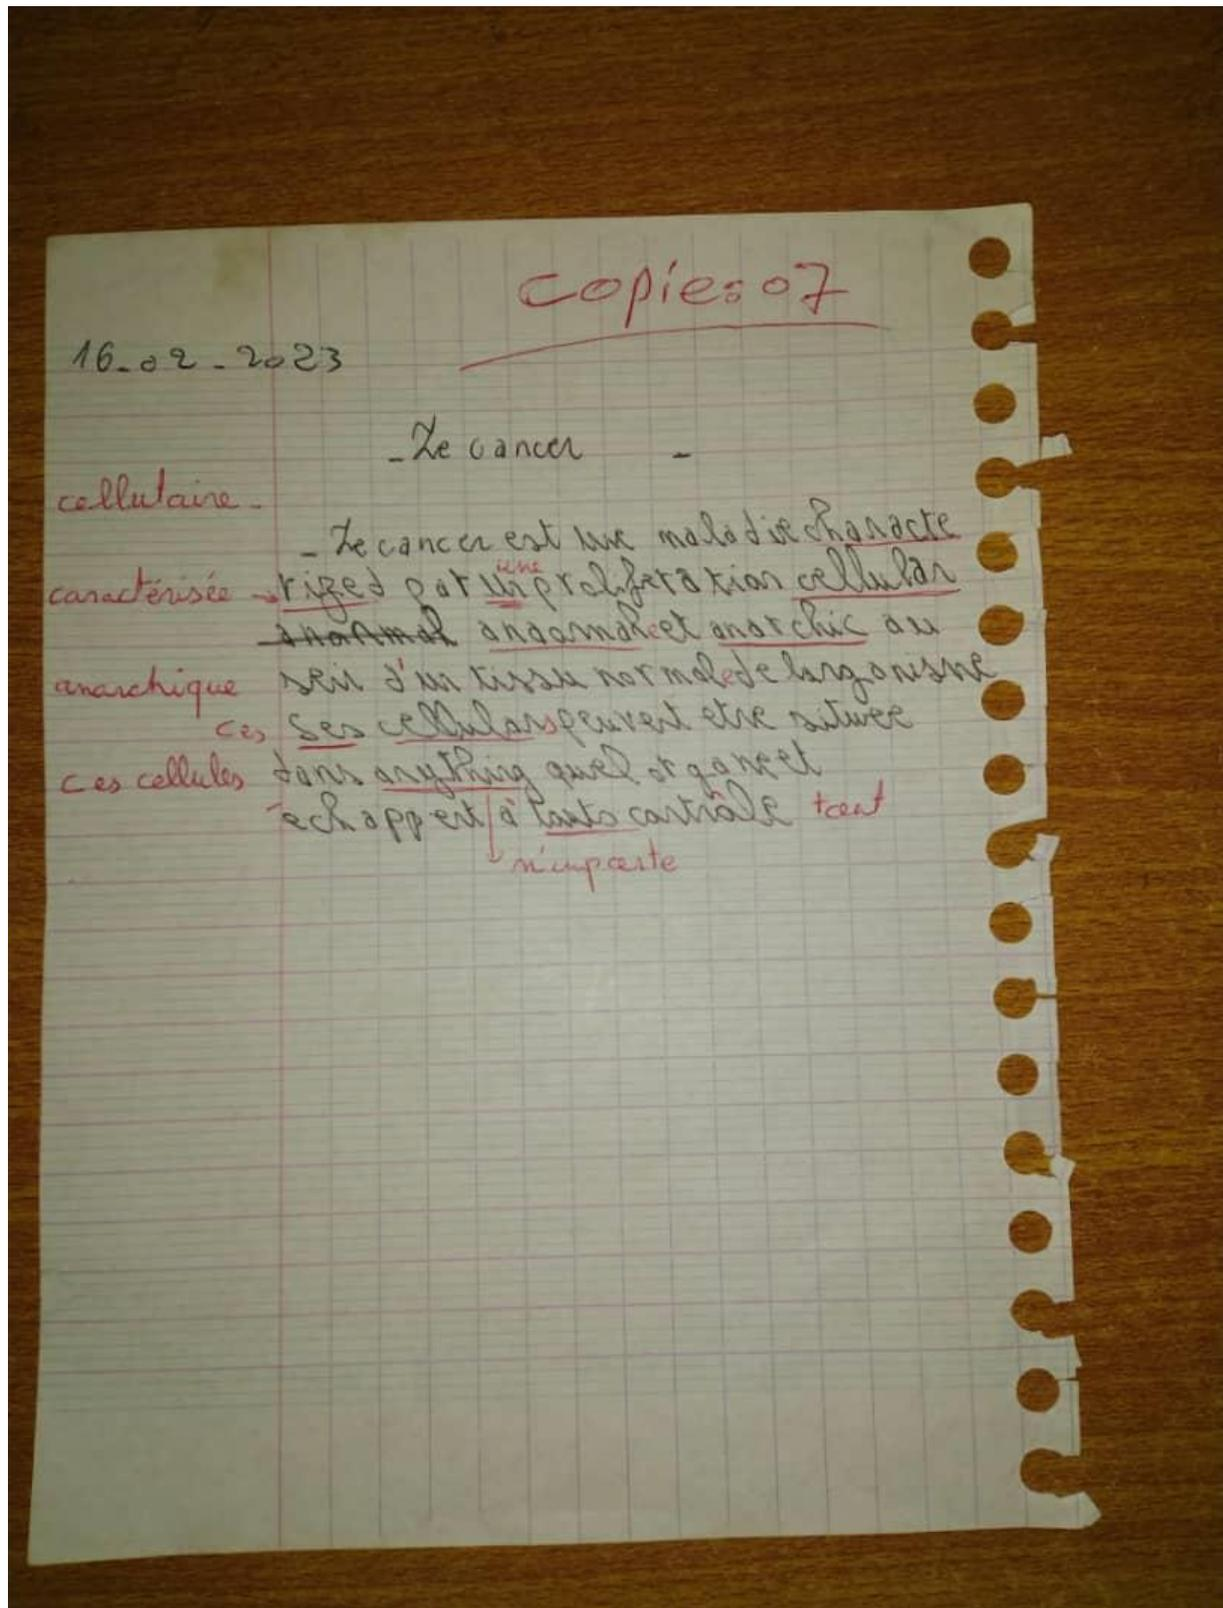 copie: 07
16-02-2023
- Le cancer -
cellulaire -
- Le cancer est une maladie characte
caractérisée rized par un une prolifération cellular
anormal et anarchic au
anarchique sein d'un tissu normale de l'organisme
ces ses cellulars peuvent etre située
ces cellules dans anything quel organe et
échappent à touts contrôle tout
n'importe